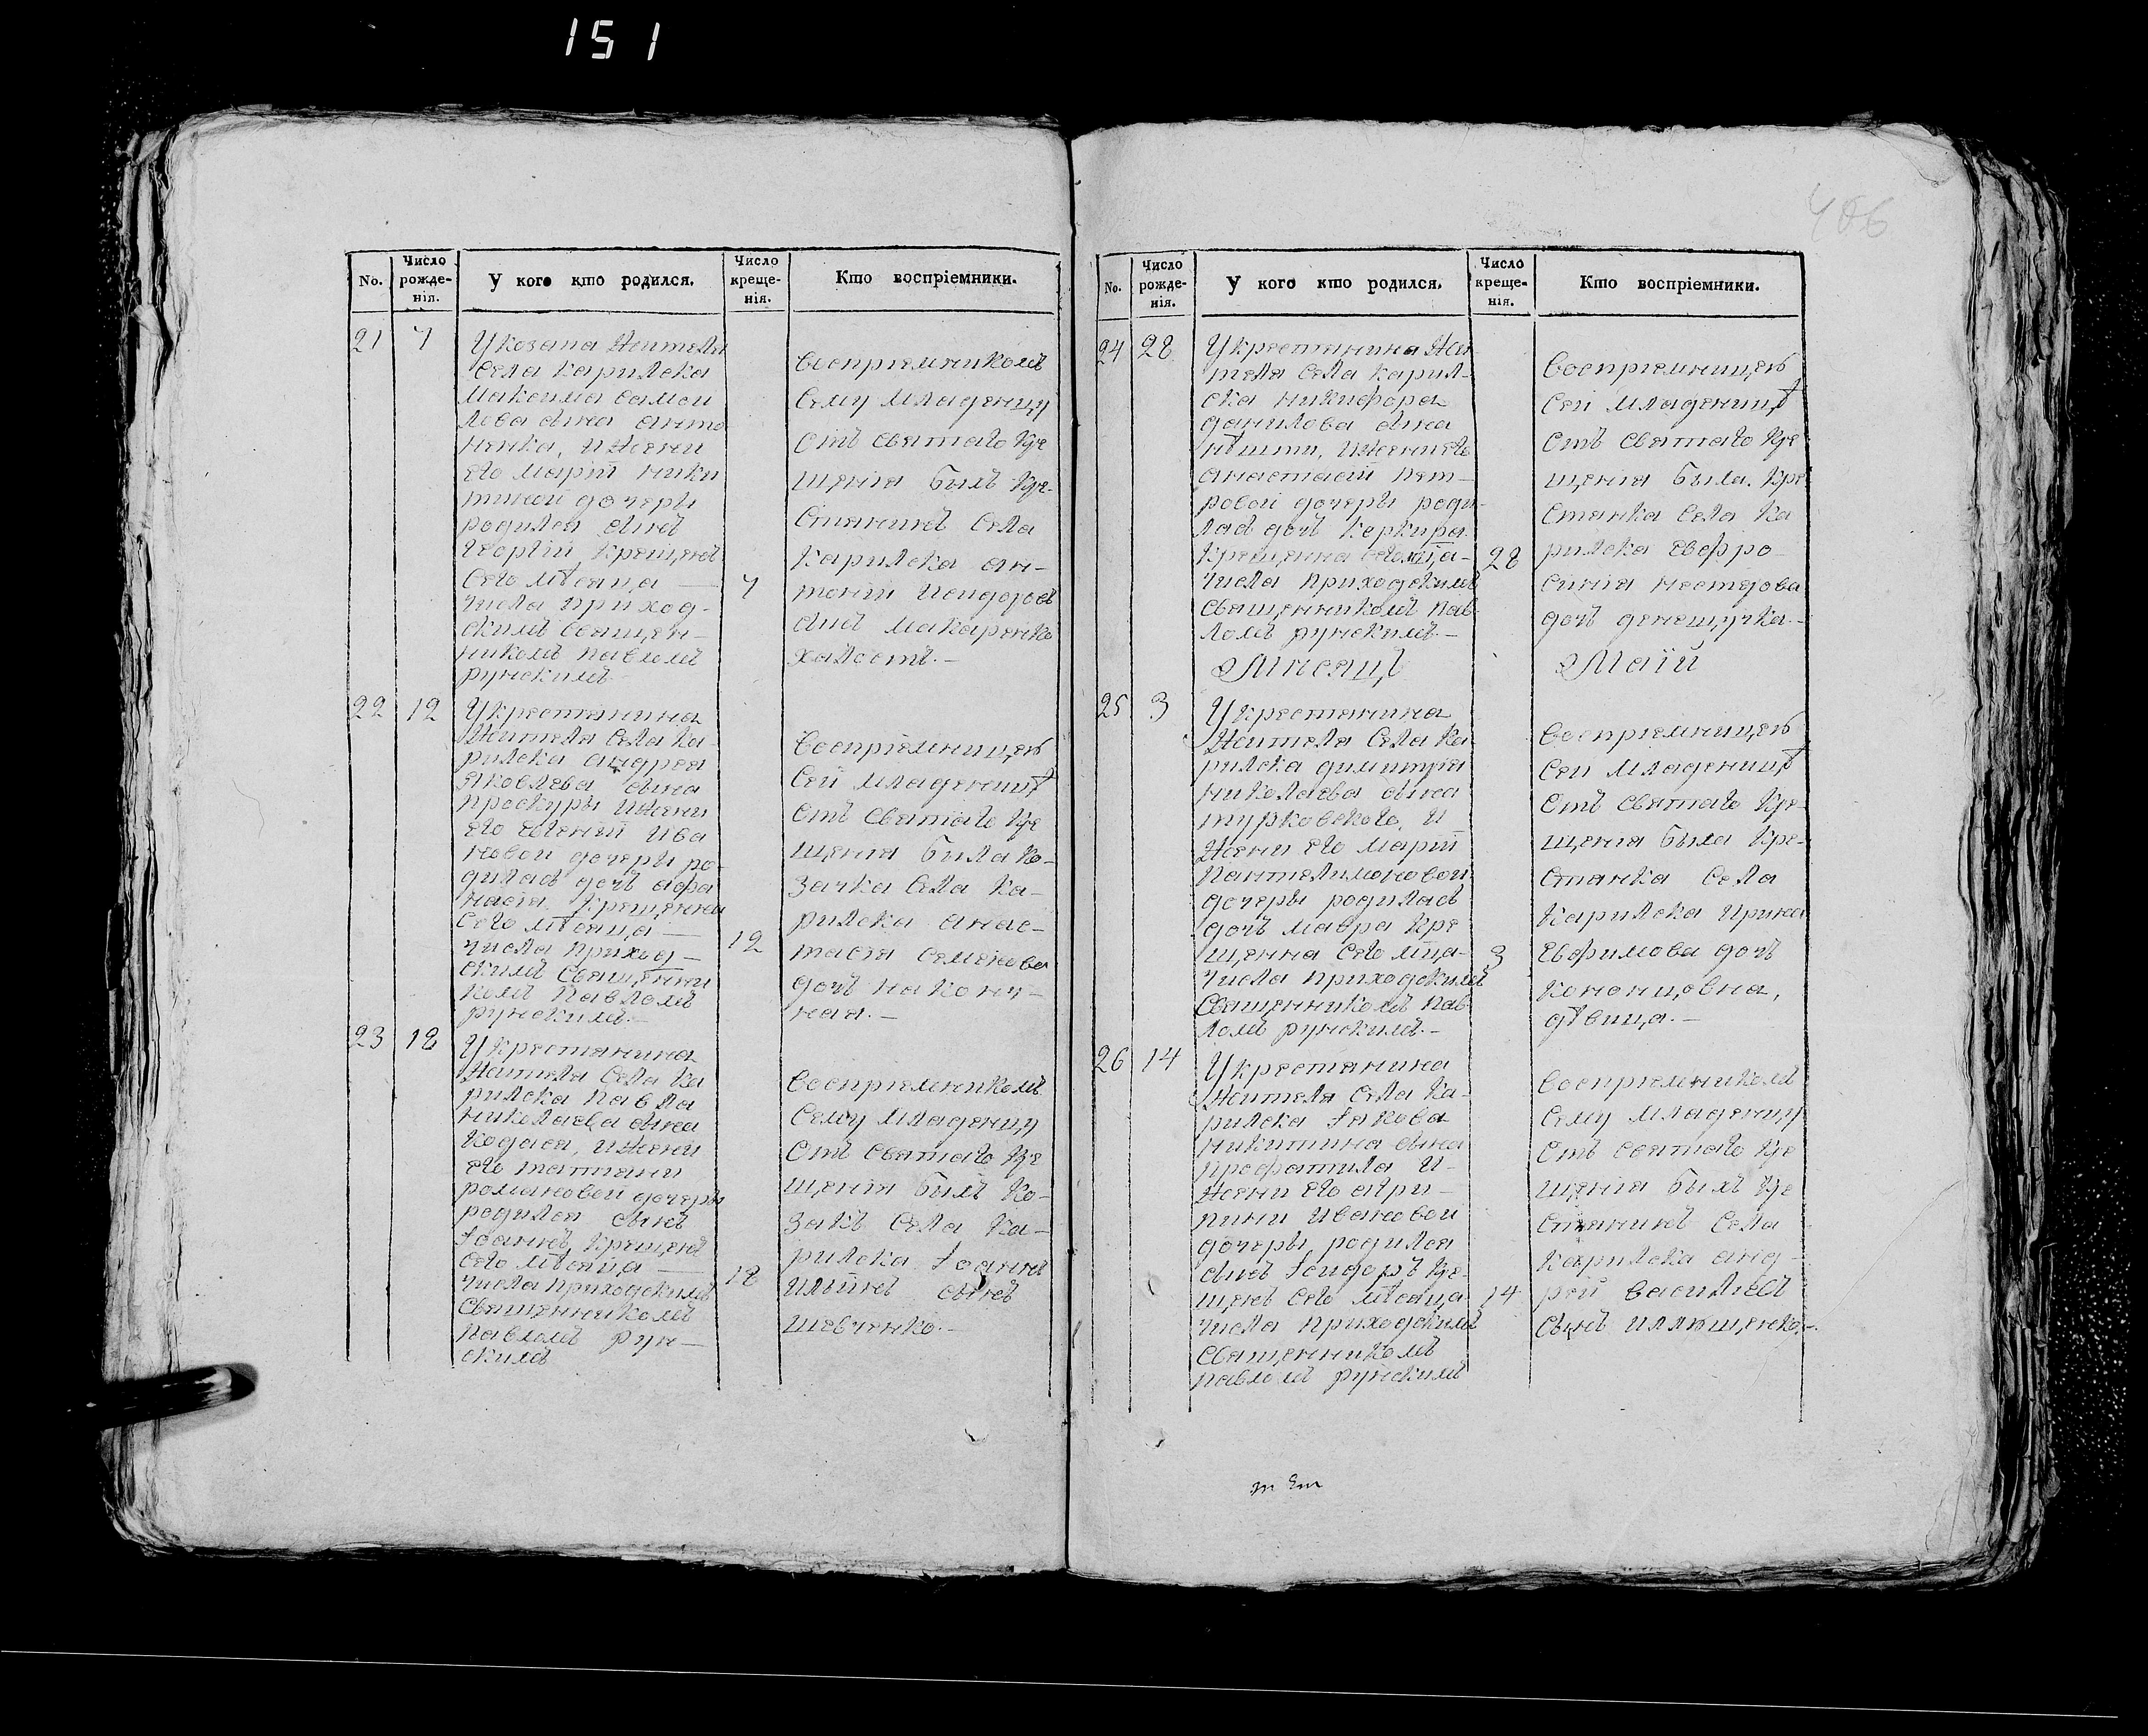 151
406
No. Число рожде- нія. У кого кто родился. Число креще- нія. Кто воспріемники.
21 7 У козака жителя
села карилска
максима самои
лова сына анто
ненка, и жени
его маріи ники
тиной дочери
родился сынъ
георгій крещенъ
сего мѣсяца — 7
числа приход-
скимъ священ-
никомъ павломъ
рунскимъ
воспріемникомъ
сему младенцу
отъ святаго кре
щенія былъ кре-
стянинъ села
карилска ан-
тоній исидоровъ
сынъ макаренко
халостъ.-
22 12 У крестянина
жителя села ка-
рилска андрея
яковлева сына
проскуры и жени
его евгеніи ива
новой дочери ро-
дилась дочь афа
насія крещенна
сего мѣсяца — 12
числа приход-
скимъ священни
комъ павломъ
рунскимъ.-
воспріемницею
сей младеницѣ
отъ святаго кре
щенія била ко-
зачка села ка-
рилска анас-
тасія семенова
дочь наконч-
ная.-
23 18 У крестянина
жителя села ка
рилска павла
николаева сына
кодася, и жени
его татияни
романовой дочери
родился сынъ
іоаннъ, крещенъ
сего мѣсяца — 18
числа приходскимъ
священникомъ
павломъ рун-
скимъ
воспріемникомъ
сему младенцу
отъ святаго кре
щенія былъ ко-
закъ села ка-
рилска іоаннъ
ильинъ сынъ
шевченко.-
No. Число рожде- нія. У кого кто родился. Число креще- нія. Кто воспріемники.
24 28 У крестянина жи
теля села карил-
ска никифора
данилова сына
, и жени его
анастасіи пет-
ровой дочери роди-
лась дочь керкира
крещенна сего мца- 28
числа приходскимъ
священникомъ пав
ломъ рунскимъ.-
воспріемницею
сей младеницѣ
отъ святаго кре
щенія была. кре
стянка села ка
рилска евфро-
синія нестерова
дочь денещучка.-
Мѣсяцъ Маій
25 3 У крестянина
жителя села ка
рилска димитрія
николаева сына
турковского, и
жени его маріи
пантелимоновой
дочери родилась
дочь мавра кре
щенна сего мца- 3
числа приходскимъ
священникомъ пав
ломъ рунскимъ.-
воспріемницею
сей младеницѣ
отъ святаго кре-
щенія была кре-
стянка села
карилска ирина
евфимова дочь
кононцовна,
дѣвица.-
26 14 У крестянина
жителя села ка-
рилска іакова
никитина сына
профатила и-
жени его агри-
пини ивановой
дочери родился
сынъ ісидоръ кре-
щенъ сего мѣсяца 14
числа приходскимъ
священникомъ
павломъ рунскимъ
воспріемникомъ
сему младенцу
отъ святаго кре
щенія былъ кре
стянинъ села
карилска анд-
рей василіевъ
сынъ илляшенко.-